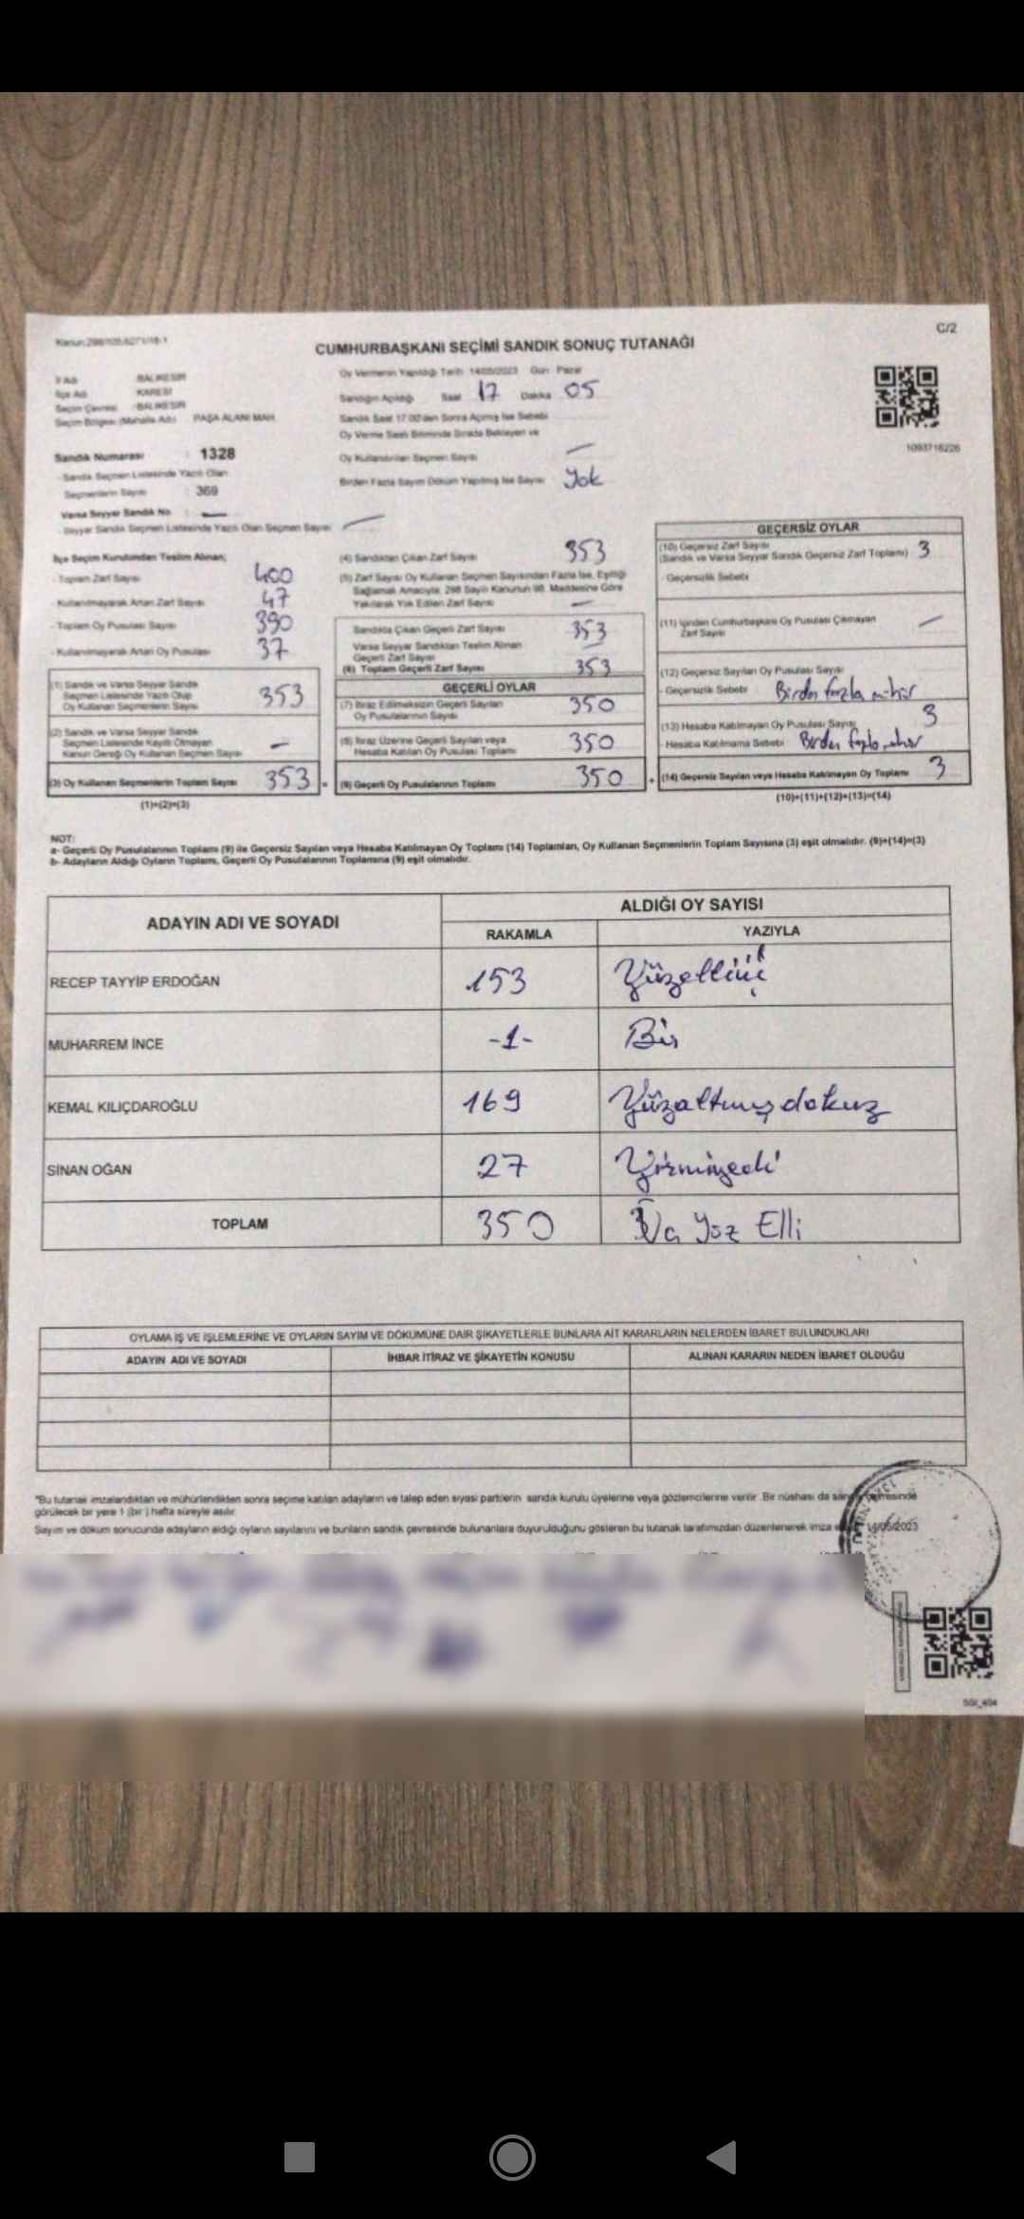 C/2
CUMHURBAŞKANI SEÇİMİ SANDIK SONUÇ TUTANAĞI
İl Adı BALIKESİR
İlçe Adı KARESİ
Seçim Çevresi BALIKESİR
Seçim Bölgesi (Mahalle Adı) PAŞA ALANI MAH.
Sandık Numarası : 1328
Sandık Seçmen Listesinde Yazılı Olan
Seçmenlerin Sayısı : 369
Varsa Seyyar Sandık No
Seyyar Sandık Seçmen Listesinde Yazılı Olan Seçmen Sayısı
Oy Vermenin Yapıldığı Tarih 14/05/2023 Gün Pazar
Sandığın Açıldığı Saat 17 Dakika 05
Sandık Saat 17.00'den Sonra Açılmış İse Sebebi
Oy Verme Saati Bitiminde Sırada Bekleyen ve
Oy Kullandırılan Seçmen Sayısı
Birden Fazla Sayım Döküm Yapılmış İse Sayısı Yok
1093716226
İlçe Seçim Kurulundan Teslim Alınan;
- Toplam Zarf Sayısı 400
- Kullanılmayarak Artan Zarf Sayısı 47
- Toplam Oy Pusulası Sayısı 390
- Kullanılmayarak Artan Oy Pusulası 37
(1) Sandık ve Varsa Seyyar Sandık
Seçmen Listesinde Yazılı Olup
Oy Kullanan Seçmenlerin Sayısı 353
(2) Sandık ve Varsa Seyyar Sandık
Seçmen Listesinde Kayıtlı Olmayan
Kanun Gereği Oy Kullanan Seçmen Sayısı -
(3) Oy Kullanan Seçmenlerin Toplam Sayısı 353
(1)+(2)=(3)
(4) Sandıktan Çıkan Zarf Sayısı 353
(5) Zarf Sayısı Oy Kullanan Seçmen Sayısından Fazla İse, Eşitliği
Sağlamak Amacıyla; 298 Sayılı Kanunun 98. Maddesine Göre
Yakılarak Yok Edilen Zarf Sayısı -
Sandıkta Çıkan Geçerli Zarf Sayısı 353
Varsa Seyyar Sandıktan Teslim Alınan
Geçerli Zarf Sayısı -
(6) Toplam Geçerli Zarf Sayısı 353
GEÇERLİ OYLAR
(7) İtiraz Edilmeksizin Geçerli Sayılan
Oy Pusulalarının Sayısı 350
(8) İtiraz Üzerine Geçerli Sayılan veya
Hesaba Katılan Oy Pusulası Toplamı 350
(9) Geçerli Oy Pusulalarının Toplamı 350
GEÇERSİZ OYLAR
(10) Geçersiz Zarf Sayısı
(Sandık ve Varsa Seyyar Sandık Geçersiz Zarf Toplamı) 3
- Geçersizlik Sebebi
(11) İçinden Cumhurbaşkanı Oy Pusulası Çıkmayan
Zarf Sayısı
(12) Geçersiz Sayılan Oy Pusulası Sayısı
- Geçersizlik Sebebi Birden fazla mühür
(13) Hesaba Katılmayan Oy Pusulası Sayısı 3
- Hesaba Katılmama Sebebi Birden fazla mühür
(14) Geçersiz Sayılan veya Hesaba Katılmayan Oy Toplamı 3
(10)+(11)+(12)+(13)=(14)
NOT:
a- Geçerli Oy Pusulalarının Toplamı (9) ile Geçersiz Sayılan veya Hesaba Katılmayan Oy Toplamı (14) Toplamları, Oy Kullanan Seçmenlerin Toplam Sayısına (3) eşit olmalıdır. (9)+(14)=(3)
b- Adayların Aldığı Oyların Toplamı, Geçerli Oy Pusulalarının Toplamına (9) eşit olmalıdır.
ADAYIN ADI VE SOYADI
ALDIĞI OY SAYISI
RAKAMLA YAZIYLA
RECEP TAYYİP ERDOĞAN 153 Yüzelliüç
MUHARREM İNCE -1- Bir
KEMAL KILIÇDAROĞLU 169 Yüzaltmışdokuz
SİNAN OĞAN 27 Yirmiyedi
TOPLAM 350 Yoz Elli
OYLAMA İŞ VE İŞLEMLERİNE VE OYLARIN SAYIM VE DÖKÜMÜNE DAİR ŞİKAYETLERLE BUNLARA AİT KARARLARIN NELERDEN İBARET BULUNDUKLARI
ADAYIN ADI VE SOYADI İHBAR İTİRAZ VE ŞİKAYETİN KONUSU ALINAN KARARIN NEDEN İBARET OLDUĞU
"Bu tutanak imzalandıktan ve mühürlendikten sonra seçime katılan adayların ve talep eden siyasi partilerin sandık kurulu üyelerine veya gözlemcilerine verilir. Bir nüshası da sandık çevresinde
görülecek bir yere 1 (bir) hafta süreyle asılır.
Sayım ve döküm sonucunda adayların aldığı oyların sayılarını ve bunların sandık çevresinde bulunanlara duyurulduğunu gösteren bu tutanak tarafımızdan düzenlenerek imza 14/05/2023